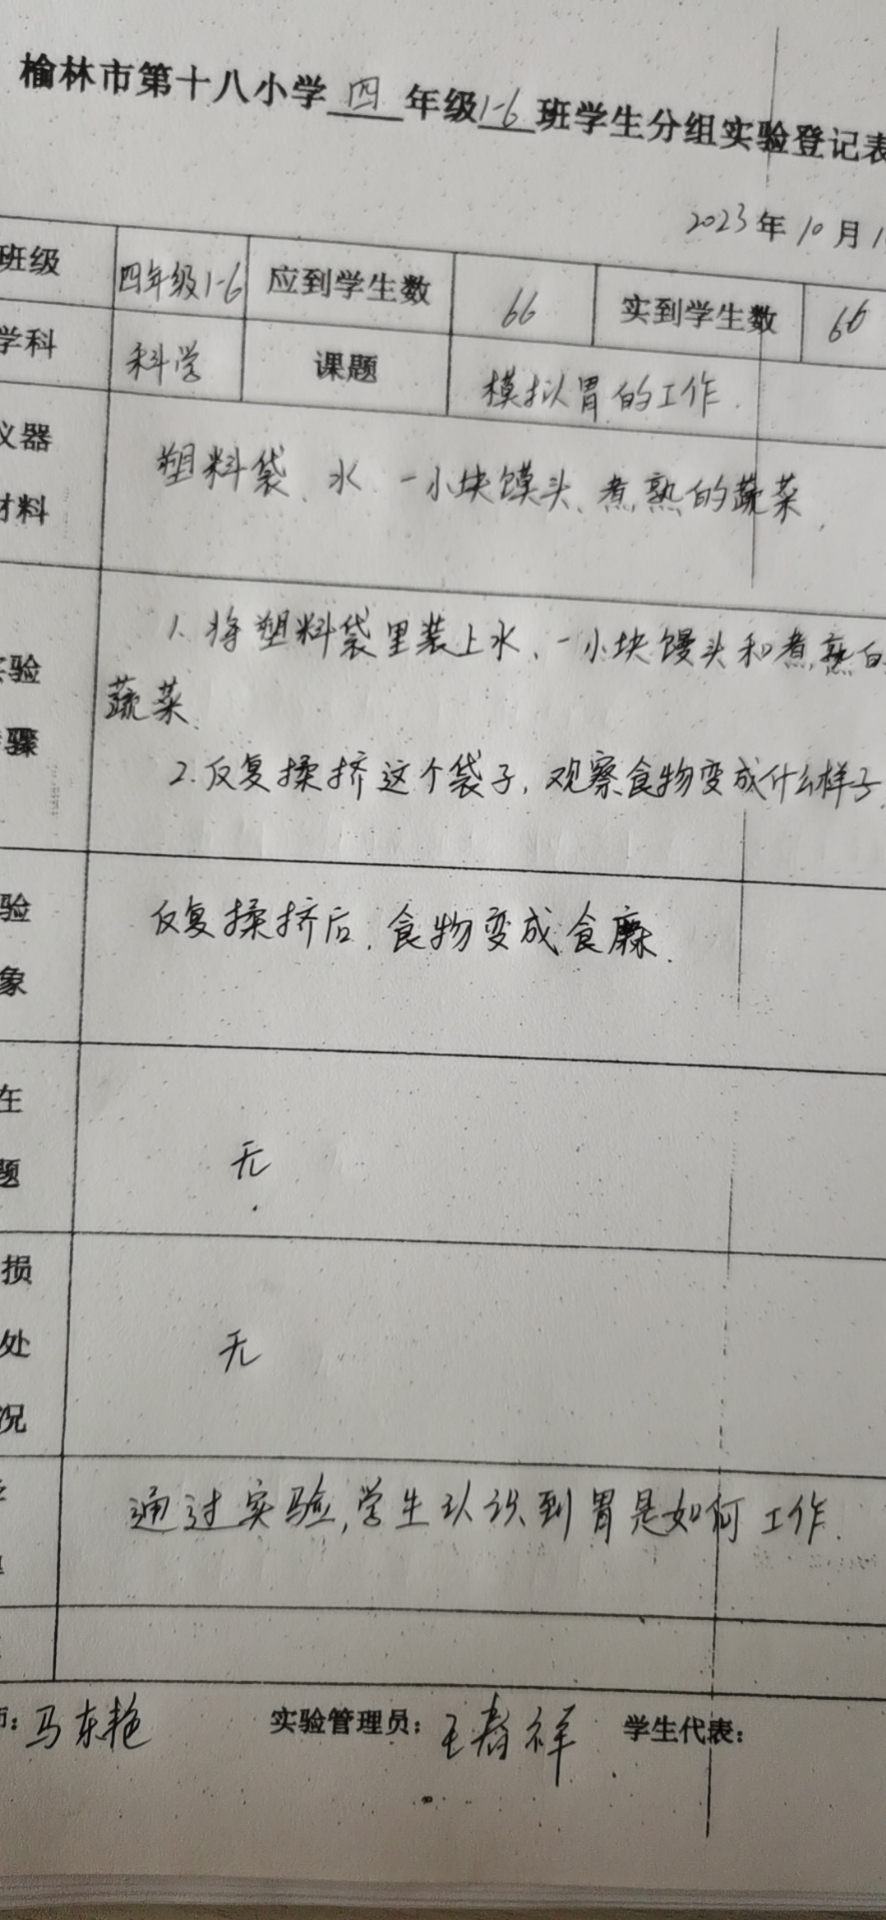 榆林市第十八小学四年级1-6班学生分组实验登记表
2023年10月1
班级 四年级1-6 应到学生数 66 实到学生数 66
学科 科学 课题 模拟胃的工作.
仪器 塑料袋、水、一小块馍头、煮熟的蔬菜.
材料
1. 将塑料袋里装上水、一小块馒头和煮熟的
实验
蔬菜.
步骤
2. 反复揉挤这个袋子,观察食物变成什么样子.
验 反复揉挤后,食物变成食糜.
象
在
题 无
损
处 无
况
通过实验,学生认识到胃是如何工作.
师:马东艳 实验管理员: 学生代表: